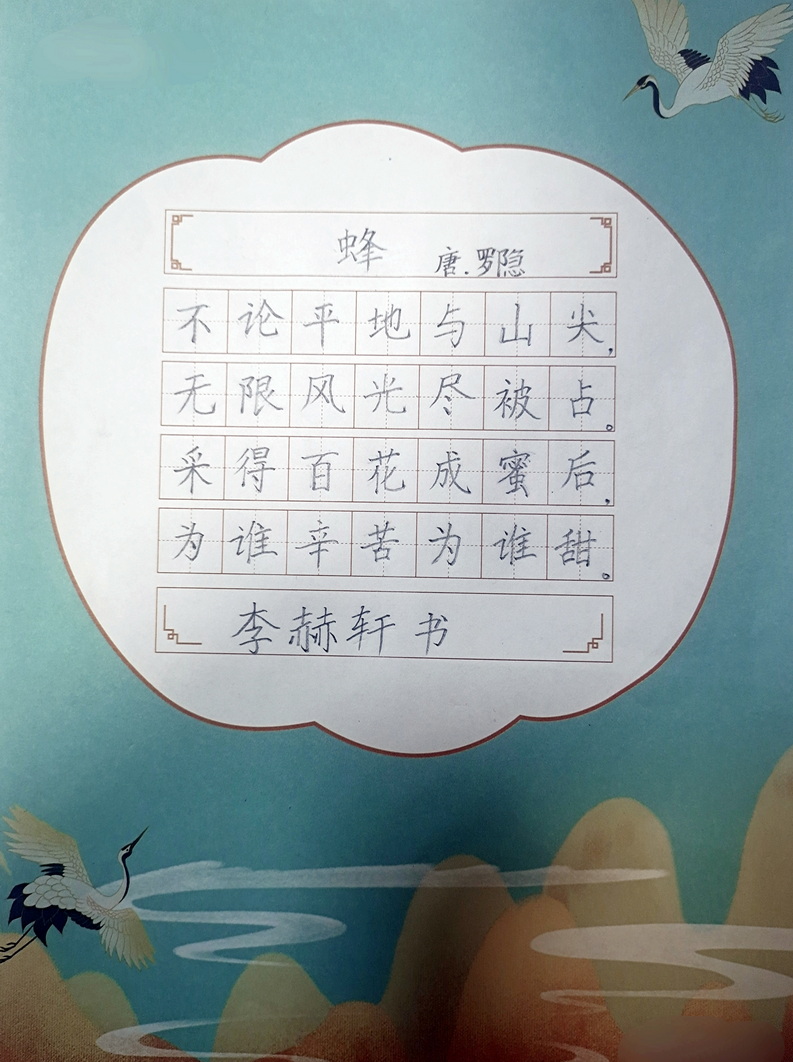 蜂 唐.罗隐
不论平地与山尖，
无限风光尽被占。
采得百花成蜜后，
为谁辛苦为谁甜。
李赫轩 书